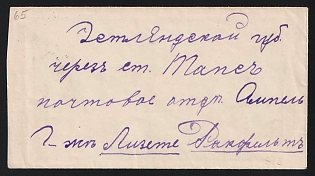 65
Эстляндской губ.
черезъ ст. Тапсъ
почтовое отдѣл. Ампель
Г-жѣ Лизете Ранфельтъ